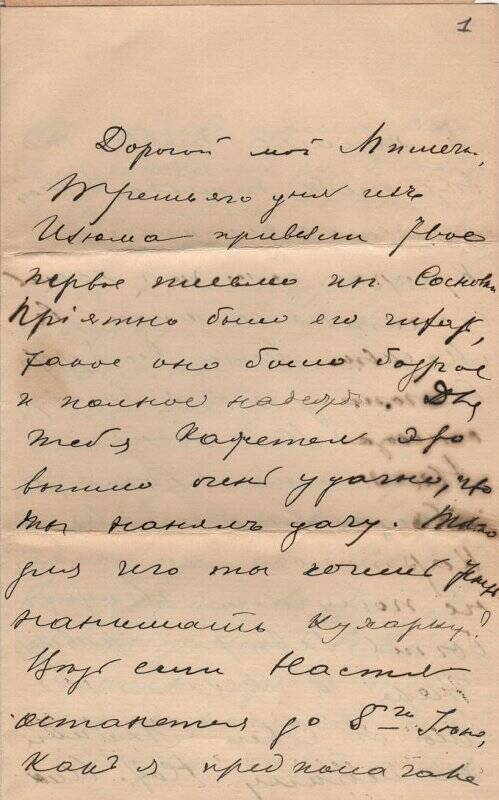 1
Дорогой мой Мишечка,
Третьяго дня изъ
Изюма привезли твое
первое письмо изъ
Пріятно было его читать,
такое оно было бодрое
и полное надежды. Для
тебя кажется это
вышло очень удачно, что
ты нанялъ дачу. Только
для чего ты хочешь
нанимать кухарку?
если Настя
останется до 8го Іюня,
какъ я предполагаю